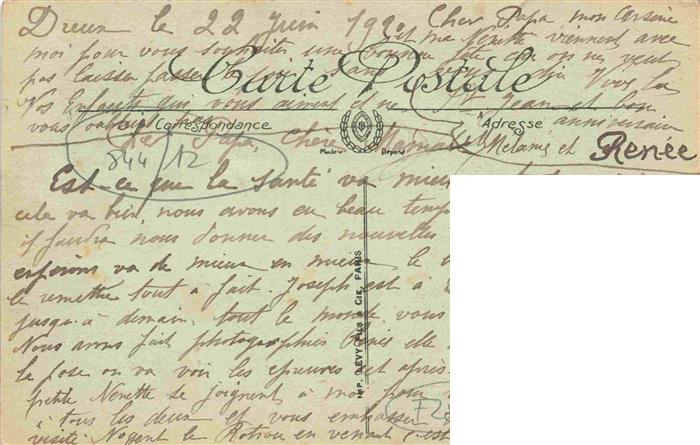 Dreux le 22 Juin 19
Cher Papa, mon Arsène
et ma Nénette viennent avec
moi pour vous souhaiter une bonne fête car on ne veut
pas laisser passer la Jean sans vous dire Vive la
St Jean et bon
anniversaire
Nos Enfants qui vous aiment et ne
vous oublient pas
Mélanie et Renée
Carte Postale
Correspondance
Adresse
Modèle Déposé
844/12
Cher Papa, Chère Maman
Est-ce que la santé va mieux
cela va bien, nous avons eu beau temps
il faudra nous donner des nouvelles
espérons va de mieux en mieux le
le remettre tout à fait. Joseph est à
jusqu'à demain, tout le monde vous
Nous avons fait photographier Renée elle
la pose on va voir les épreuves cet après
petite Nénette se joignent à moi pour
à tous les deux et vous embrasser
visité Nogent le Rotrou en venant c'est
IMP. LEVY FILS & CIE, PARIS